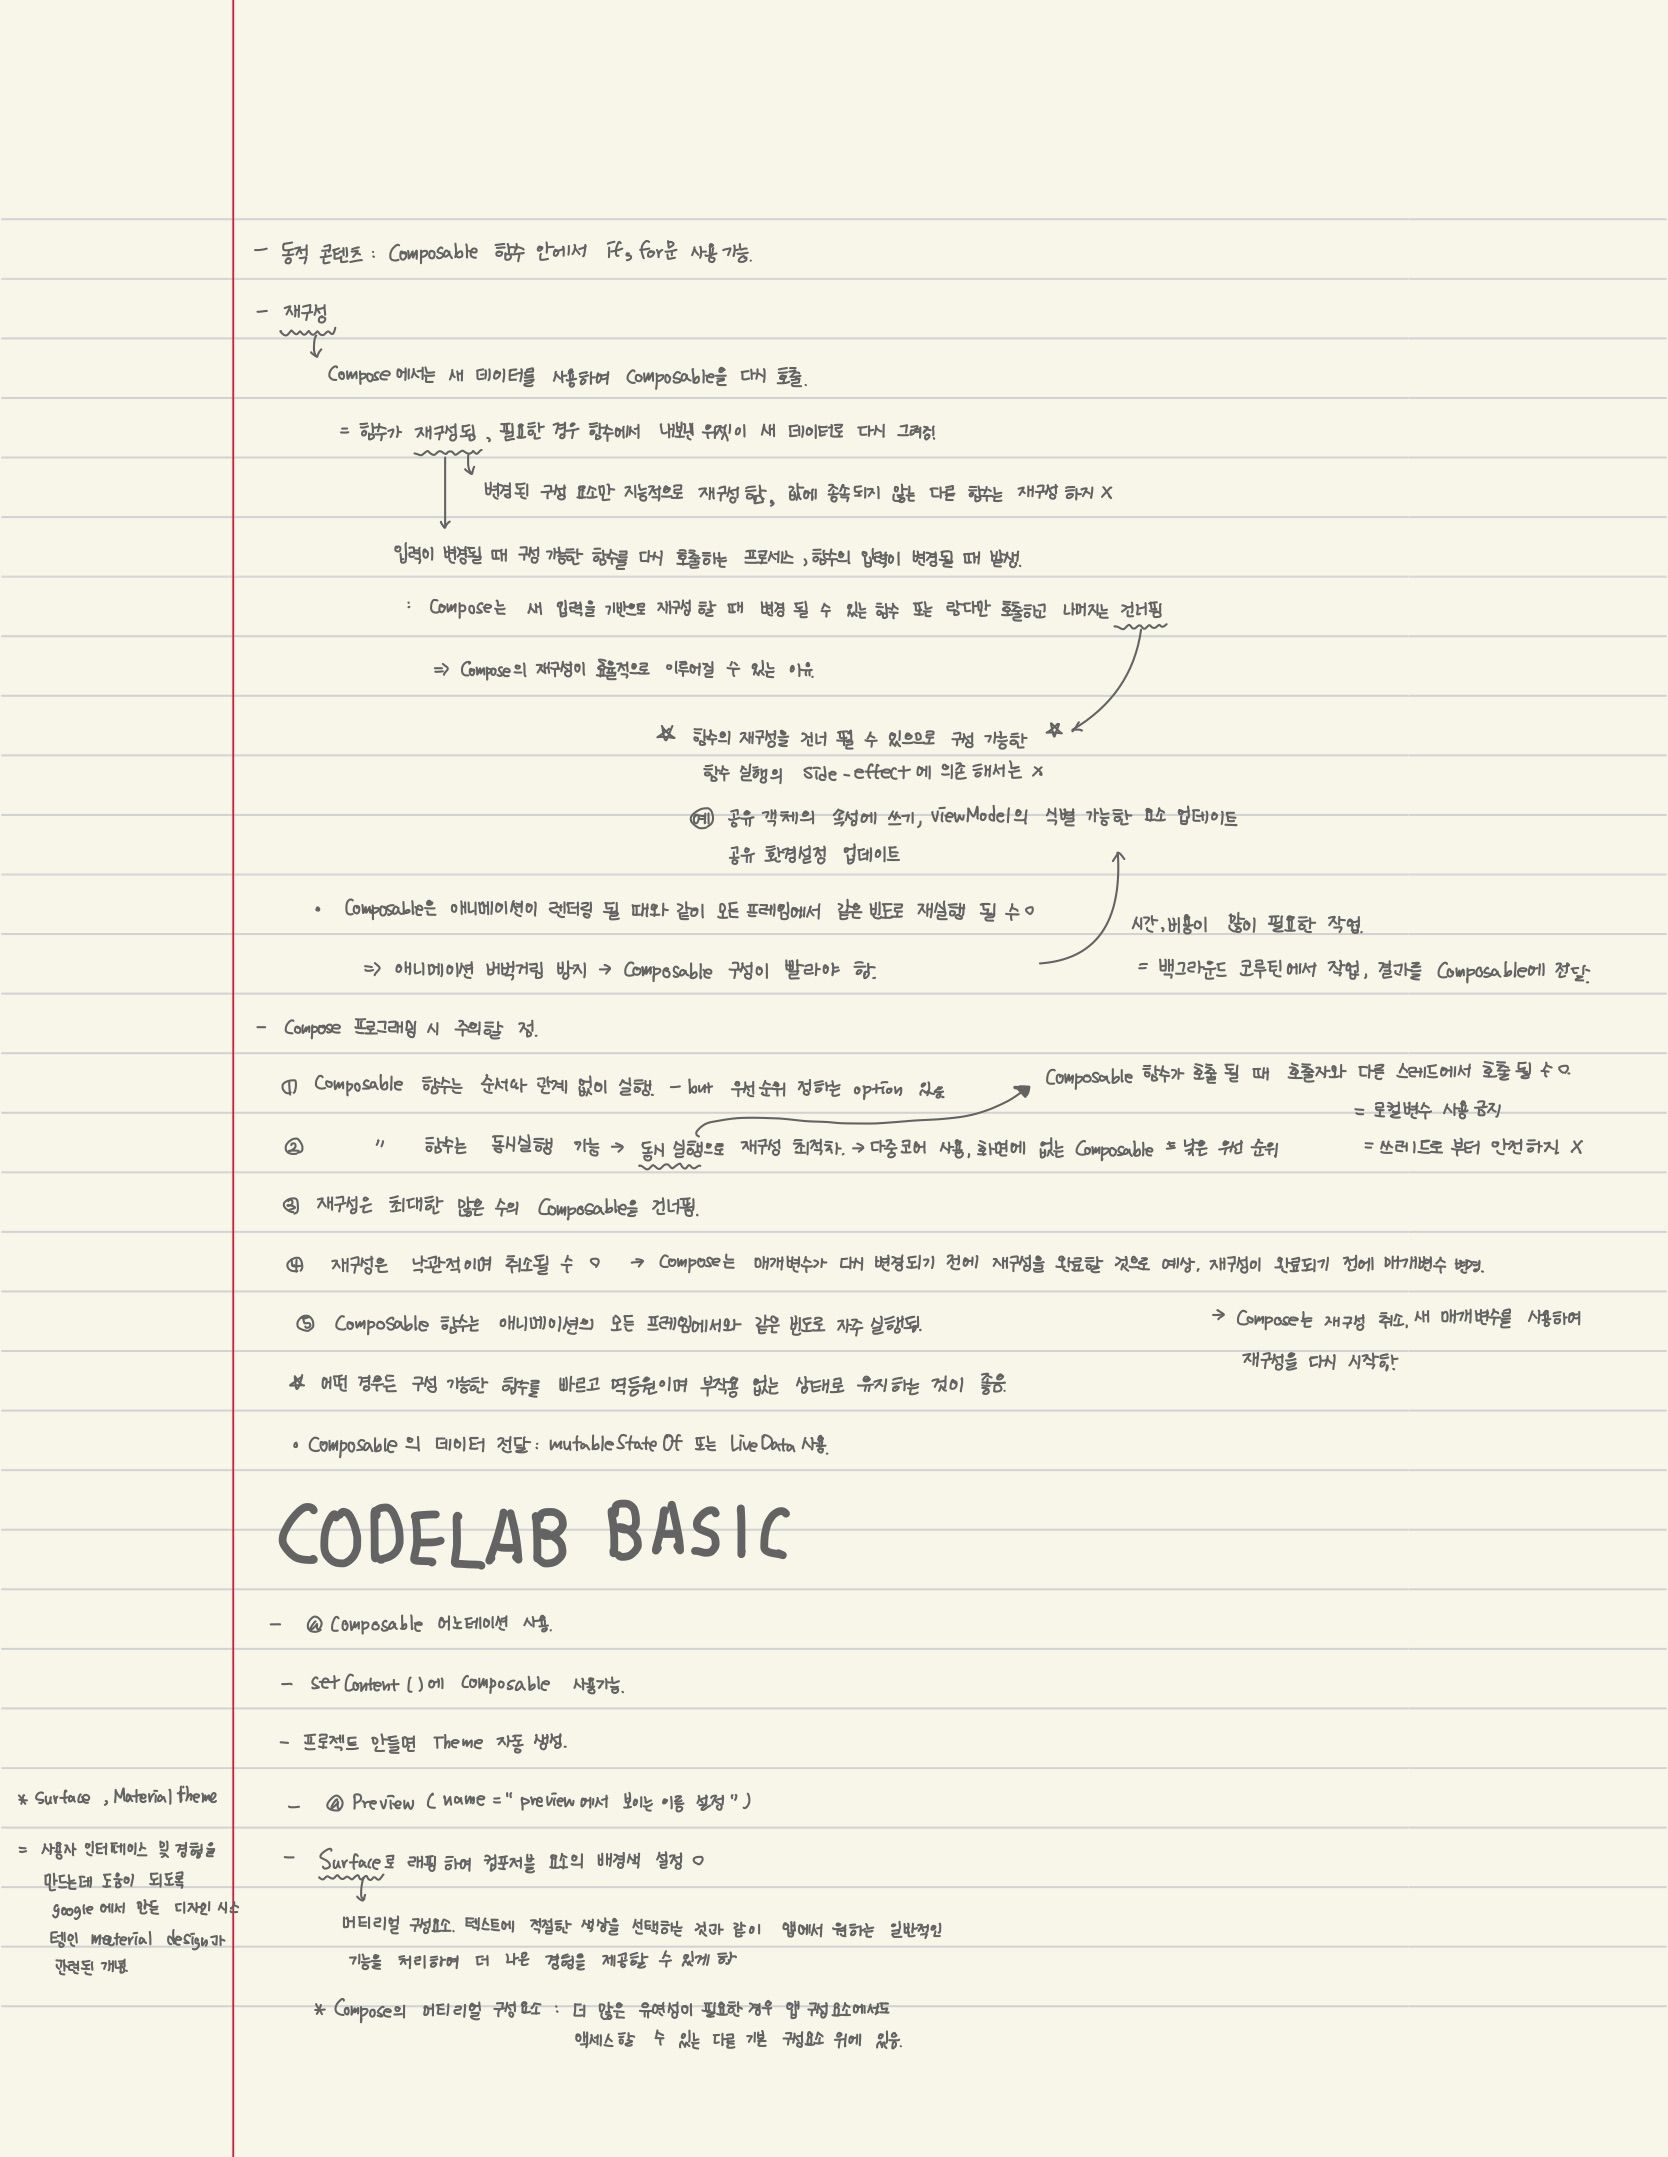 - 동적 콘텐츠 : Composable 함수 안에서 if, for문 사용 가능.
- 재구성
Compose에서는 새 데이터를 사용하여 Composable을 다시 호출.
= 함수가 재구성됨, 필요한 경우 함수에서 내보낸 위젯이 새 데이터로 다시 그려짐!
변경된 구성 요소만 지능적으로 재구성 함, 값에 종속되지 않는 다른 함수는 재구성 하지 X
입력이 변경될 때 구성 가능한 함수를 다시 호출하는 프로세스, 함수의 입력이 변경될 때 발생.
: Compose는 새 입력을 기반으로 재구성 할 때 변경 될 수 있는 함수 또는 람다만 호출하고 나머지는 건너뜀
⇒ Compose의 재구성이 효율적으로 이루어질 수 있는 이유.
☆ 함수의 재구성을 건너 뛸 수 있으므로 구성 가능한 ☆
함수 실행의 side-effect에 의존 해서는 X
예 공유 객체의 속성에 쓰기, viewModel의 식별 가능한 요소 업데이트
공유 환경설정 업데이트
• Composable은 애니메이션이 렌더링 될 때와 같이 모든 프레임에서 같은 빈도로 재실행 될 수 O
시간, 비용이 많이 필요한 작업.
⇒ 애니메이션 버벅거림 방지 → Composable 구성이 빨라야 함.
= 백그라운드 코루틴에서 작업, 결과를 Composable에 전달.
- Compose 프로그래밍 시 주의할 점.
① Composable 함수는 순서와 관계 없이 실행. - but 우선순위 정하는 option 있음
Composable 함수가 호출 될 때 호출자와 다른 스레드에서 호출 될 수 O
= 로컬변수 사용 금지
② 〃 함수는 동시실행 가능 → 동시 실행으로 재구성 최적화. → 다중코어 사용, 화면에 없는 Composable = 낮은 우선 순위
= 쓰레드로 부터 안전하지 X
③ 재구성은 최대한 많은 수의 Composable을 건너뜀.
④ 재구성은 낙관적이며 취소될 수 O → Compose는 매개변수가 다시 변경되기 전에 재구성을 완료할 것으로 예상. 재구성이 완료되기 전에 매개변수 변경.
→ Compose는 재구성 취소, 새 매개변수를 사용하여
재구성을 다시 시작함
⑤ Composable 함수는 애니메이션의 모든 프레임에서와 같은 빈도로 자주 실행됨.
☆ 어떤 경우든 구성 가능한 함수를 빠르고 멱등원이며 부작용 없는 상태로 유지하는 것이 좋음.
• Composable의 데이터 전달 : mutableStateOf 또는 LiveData 사용.
CODELAB BASIC
- @Composable 어노테이션 사용.
- setContent()에 Composable 사용가능.
- 프로젝트 만들면 Theme 자동 생성.
- @Preview (name = "preview에서 보이는 이름 설정")
- Surface로 래핑 하여 컴포저블 요소의 배경색 설정 O
머티리얼 구성요소. 텍스트에 적절한 색상을 선택하는 것과 같이 앱에서 원하는 일반적인
기능을 처리하여 더 나은 경험을 제공할 수 있게 함
* Compose의 머티리얼 구성요소 : 더 많은 유연성이 필요한 경우 앱 구성요소에서도
액세스 할 수 있는 다른 기본 구성요소 위에 있음.
* Surface, Material theme
= 사용자 인터페이스 및 경험을
만드는데 도움이 되도록
google에서 만든 디자인 시스
템인 material design과
관련된 개념.